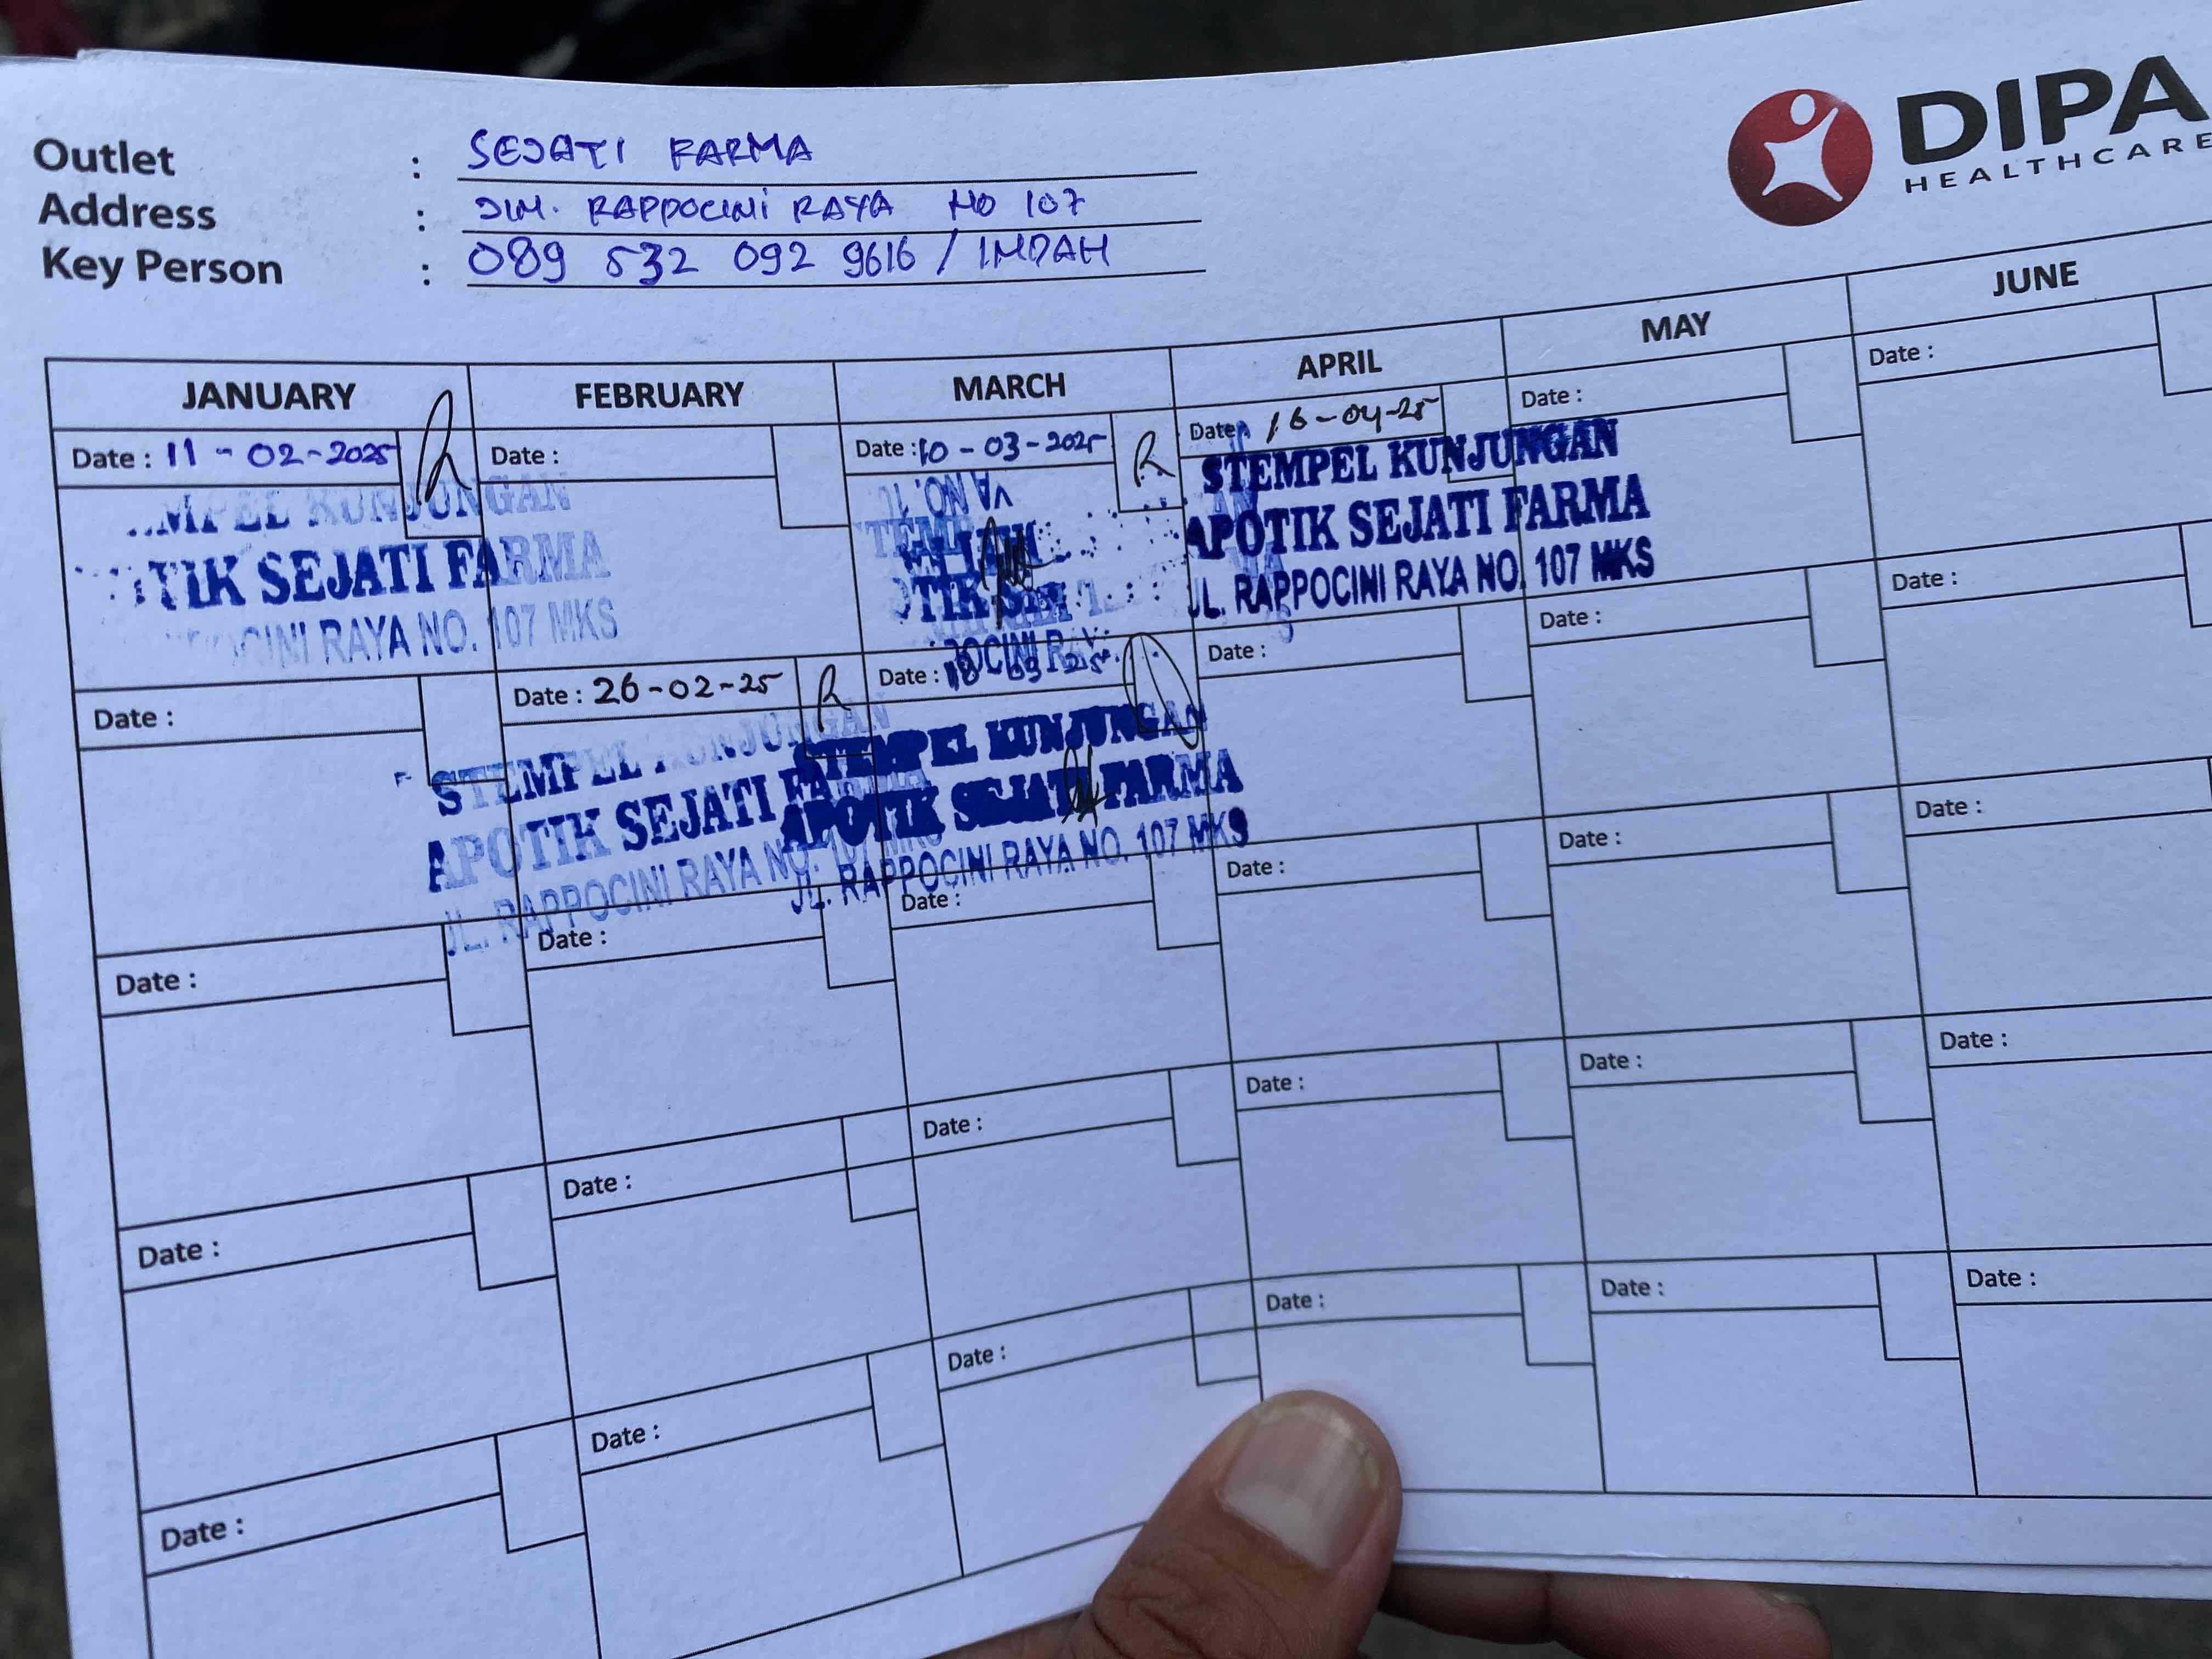 DIPA
HEALTHCARE
Outlet : SEJATI FARMA
Address : JLN. RAPPOCINI RAYA NO 107
Key Person : 089 532 092 9616 / INDAH
JANUARY FEBRUARY MARCH APRIL MAY JUNE
Date : 11-02-2025 Date : Date : 10-03-2025 Date : 16-04-25 Date : Date :
KUNJUNGAN
TIK SEJATI FARMA
RAYA NO. 107 MKS
STEMPEL KUNJUNGAN
APOTIK SEJATI FARMA
JL. RAPPOCINI RAYA NO. 107 MKS
Date : Date : 26-02-25 Date : Date : Date : Date :
STEMPEL KUNJUNGAN
APOTIK SEJATI FARMA
JL. RAPPOCINI RAYA NO.
STEMPEL KUNJUNGAN
APOTIK SEJATI FARMA
JL. RAPPOCINI RAYA NO. 107 MKS
Date : Date : Date : Date : Date : Date :
Date : Date : Date : Date : Date : Date :
Date : Date : Date : Date : Date : Date :